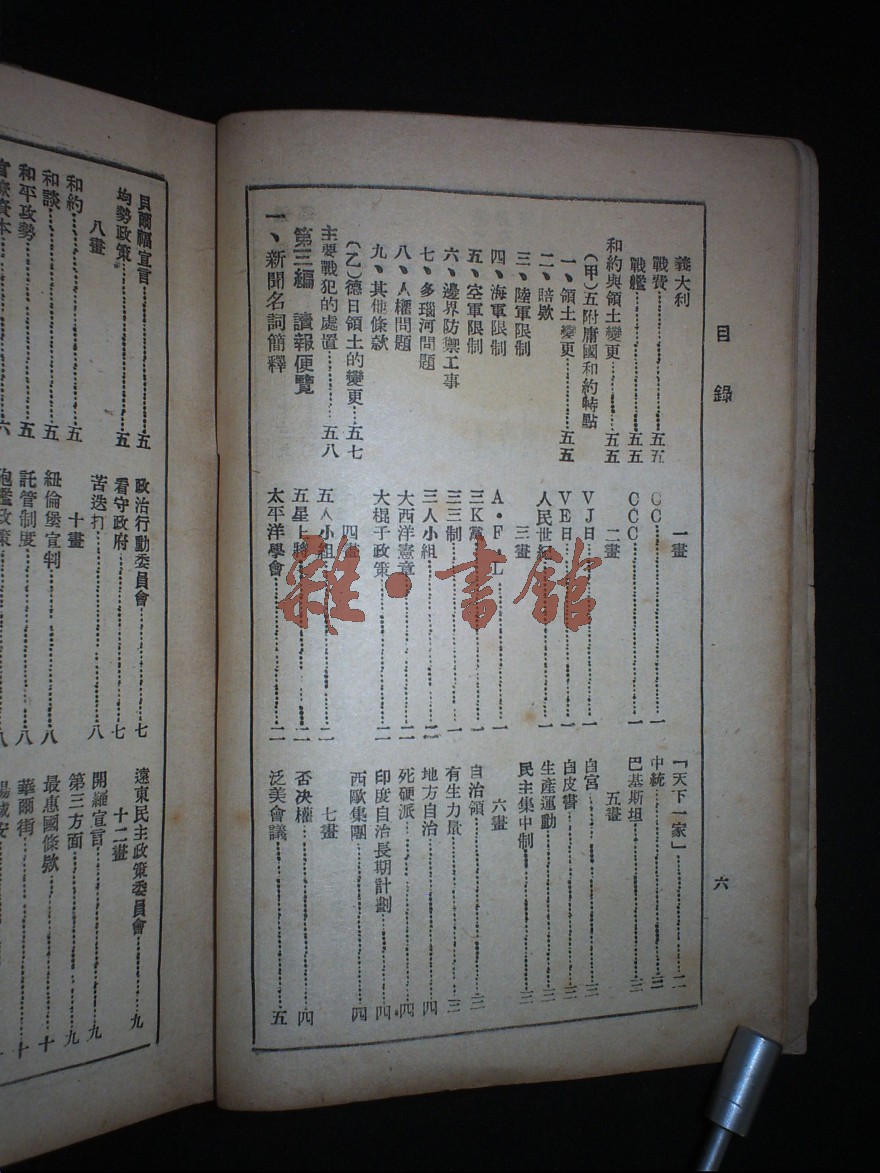 目錄
六
義大利
戰費……五五
戰艦……五五
和約與領土變更……五五
(甲)五附庸國和約特點
一、領土變更……五五
二、賠欵
三、陸軍限制
四、海軍限制
五、空軍限制
六、邊界防禦工事
七、多瑙河問題
八、人權問題
九、其他條款
(乙)德日領土的變更……五七
主要戰犯的處置……五八
第三編 讀報便覽
一、新聞名詞簡釋
一畫
CC……一
CCC……一
二畫
VJ日……一
VE日……一
人民世紀……一
三畫
A·F·L……一
三K黨……一
三三制……一
三人小組……二
大西洋憲章……二
大棍子政策……二
四畫
五人小組……二
五星上將……二
太平洋學會……二
「天下一家」……二
中統……三
巴基斯坦……三
五畫
白宮……三
白皮書……三
生產運動……三
民主集中制……三
六畫
自治領……三
有生力量……三
地方自治……四
死硬派……四
印度自治長期計劃……四
西歐集團……四
七畫
否决權……四
泛美會議……五
貝爾福宣言……五
均勢政策……五
八畫
和約……五
和談……五
和平攻勢……五
官僚資本……六
政治行動委員會……七
看守政府……七
苦迭打……八
十畫
紐倫堡宣判……八
託管制度……八
砲艦政策……八
遠東民主政策委員會……九
十二畫
開羅宣言……九
第三方面……九
最惠國條欵……十
華爾街……十
雜·書館